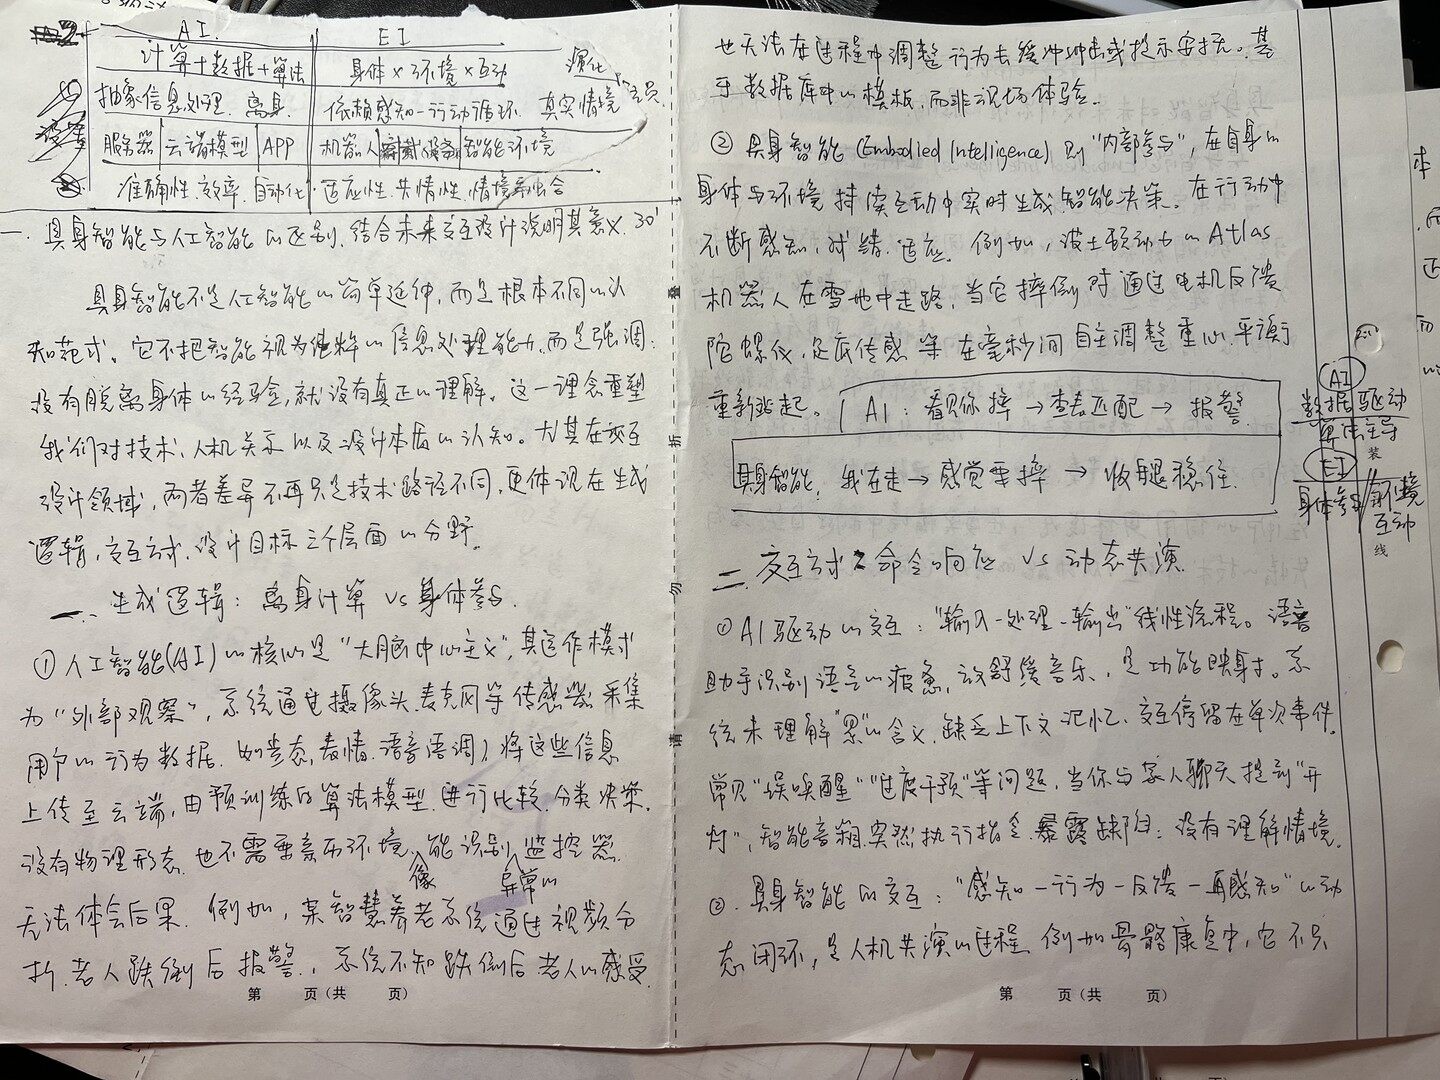 AI | EI
计算+数据+算法 | 身体×环境×互动 演化
抽象信息处理 离身 | 依赖感知-行动循环 真实情境
服务器 | 云端模型 | APP | 机器人 | 穿戴设备 | 智能环境
准确性 效率 自动化 | 适应性 共情性 情境融合
一、具身智能与人工智能的区别,结合未来交互设计说明其意义. 30'
具身智能不是人工智能的简单延伸,而是根本不同的认
知范式。它不把智能视为纯粹的信息处理能力,而是强调:
没有脱离身体的经验,就没有真正的理解。这一理念重塑
我们对技术、人机关系以及设计本质的认知。尤其在交互
设计领域,两者差异不再只是技术路径不同,更体现在生成
逻辑,交互方式.设计目标三个层面的分野。
一、生成逻辑:离身计算 VS 身体参与.
①人工智能(AI)的核心是"大脑中心主义",其运作模式
为"外部观察",系统通过摄像头.麦克风等传感器采集
用户的行为数据.如姿态,表情.语音语调,将这些信息
上传至云端,由预训练的算法模型.进行比较.分类决策.
没有物理形态.也不需要亲历环境、像能识别异常的监控器.
无法体会后果.例如,某智慧养老系统通过视频分
析.老人跌倒后报警,系统不知跌倒后老人的感受
第 页(共 页)
也无法在过程中调整行为去缓冲冲击或提示安抚。基
于数据库中的模板,而非现场体验.
②具身智能(Embodied Intelligence)则"内部参与",在自身的
身体与环境持续互动中实时生成智能决策。在行动中
不断感知,试错.适应.例如,波士顿动力的Atlas
机器人在雪地中走路,当它摔倒时通过电机反馈
陀螺仪,足底传感等在毫秒间自主调整重心.平衡,
重新站起。
AI:看见你摔→查表匹配→报警.
具身智能:我在走→感觉要摔→收腿稳住.
二 交互方式:命令响应 VS 动态共演.
①AI驱动的交互:"输入-处理-输出"线性流程。语音
助手识别语言的疲惫,放舒缓音乐,是功能映射。系
统未理解"累"的含义.缺乏上下文记忆、交互停留在单次事件.
常见"误唤醒""过度干预"等问题,当你与家人聊天提到"开
灯",智能音箱突然执行指令暴露缺陷:没有理解情境.
②.具身智能的交互:"感知-行为-反馈-再感知"的动
态闭环,是人机共演的过程.例如骨骼康复中,它不只
第 页(共 页)
AI
数据驱动
算法主导
EI
身体参与/环境
互动
折
勿
请
装
线